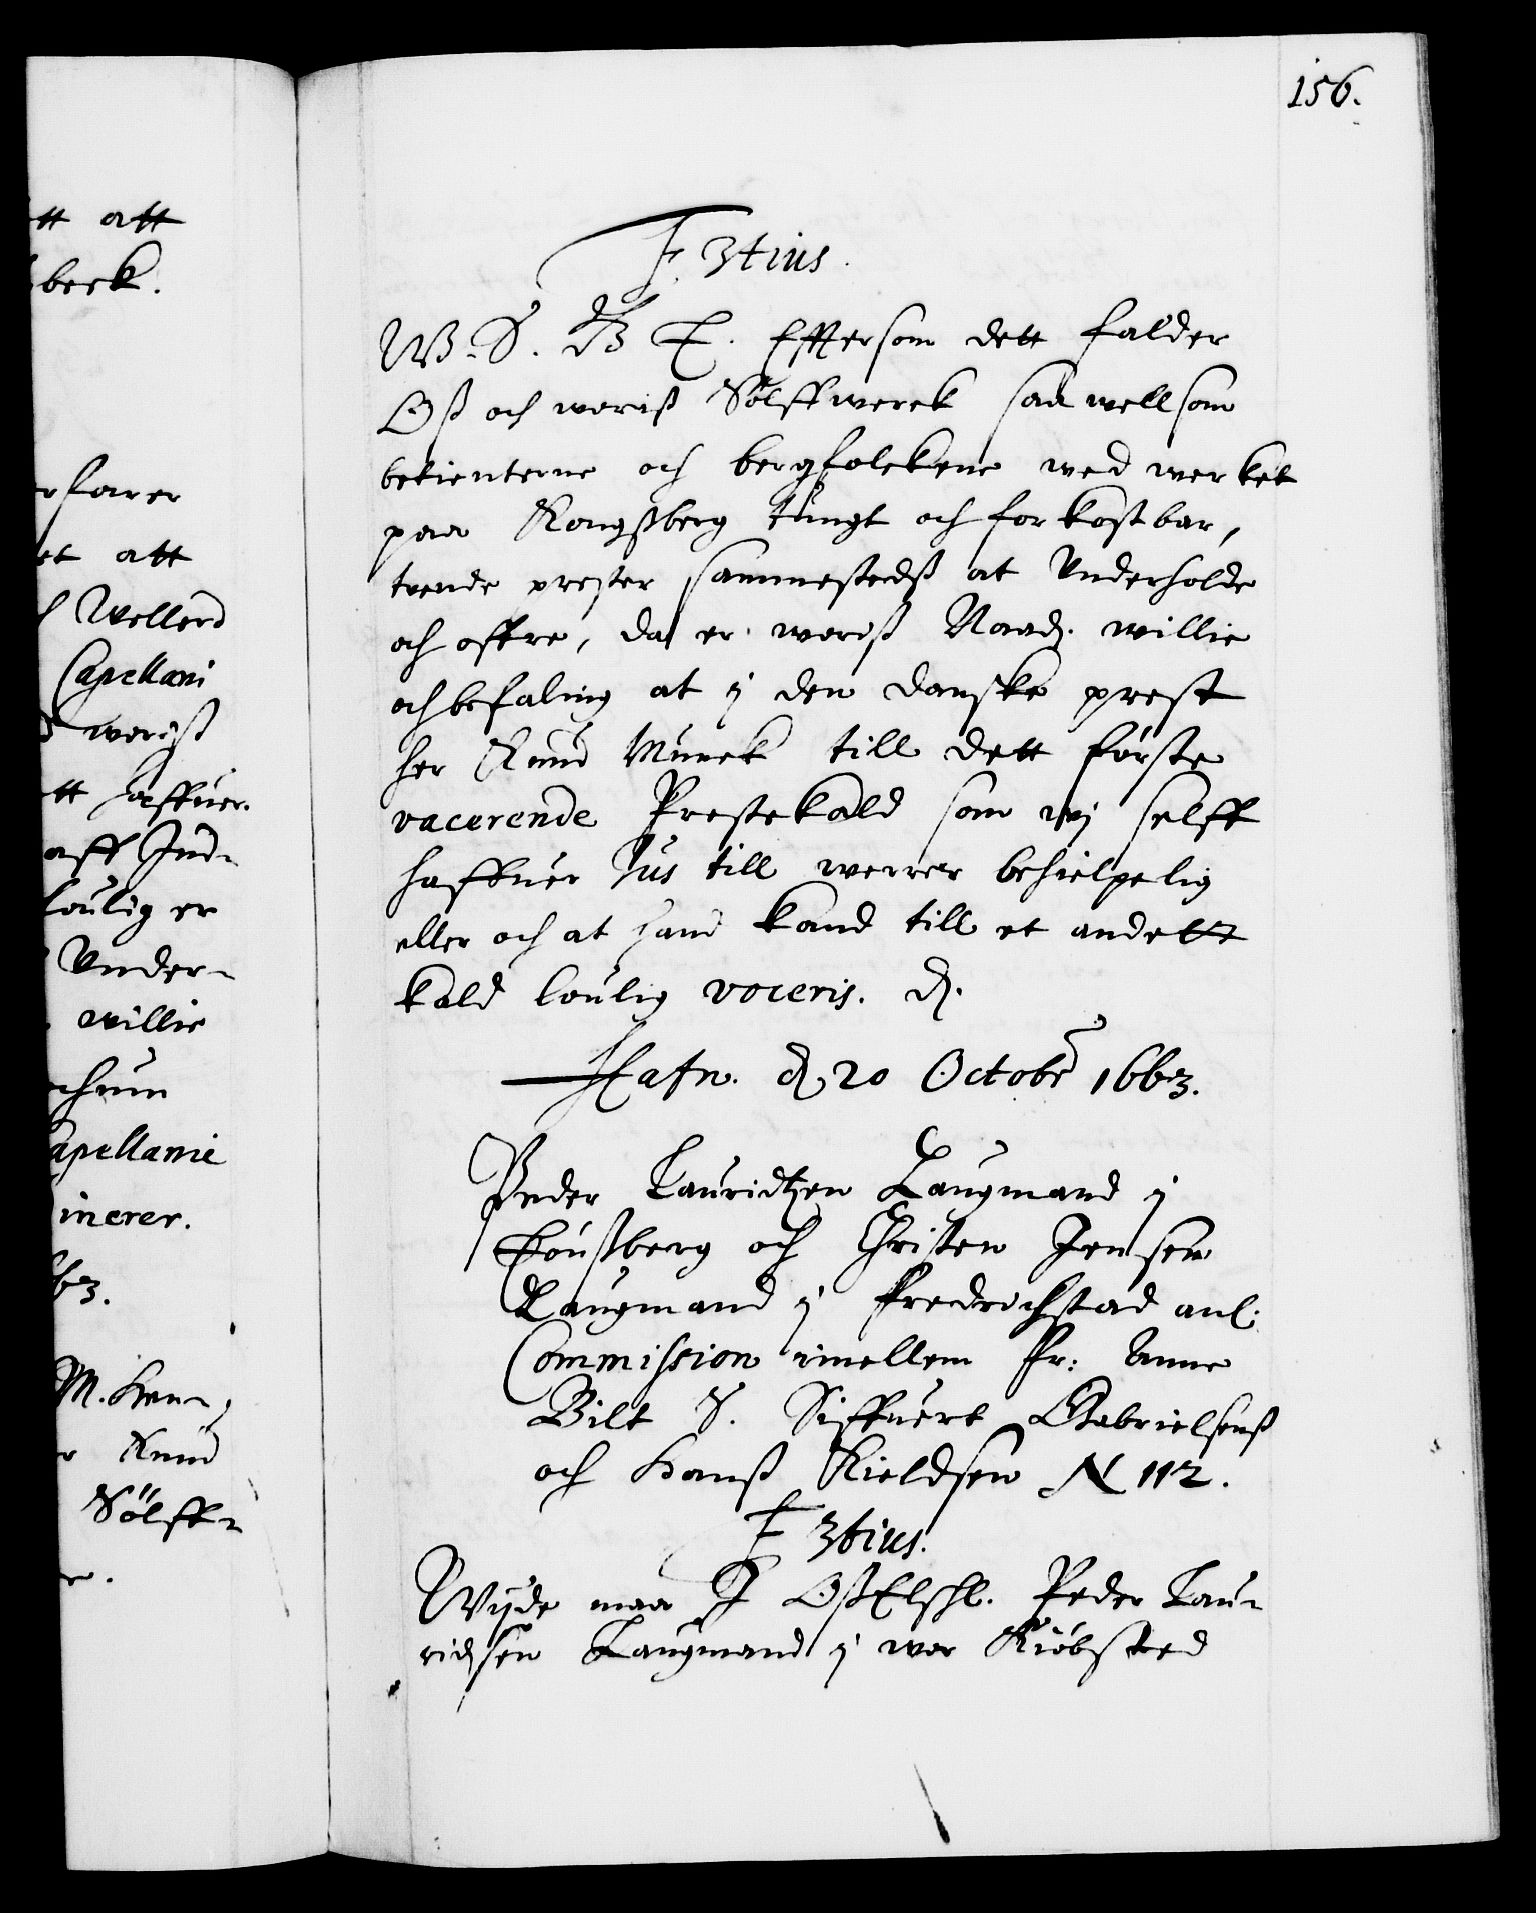 tt att
beck.
rfarer
et att
Wellerd
Capellani
d woris
tt haffuer.
aff Ind-
loulig er
Vnder-
willie
chrun
apellanie
inerer.
63.
M. Hen-
r Knud
Sölff-
e.
156.
F. 3tius.
W. S. G T. Efftersom dett falder
Oß och woris Sölffwerck saa well som
betienterne och bergfolckene wed werket
paa Kongßberg tungt och for kostbar,
tvende prester sammesteds at Vnderholde
och offre, da er woris Naad. willie
och befaling at i den danske prest
her Knud Munck till dett förste
vacerende Prestekald som wj selff
haffuer Jus till werrer behielpelig
eller och at hand kand till et andett
kald loulig voceris. D.
Hafn. d 20 Octobr 1663.
Peder Lauridtzen Laugmand i
Tönßberg och Christen Jensen
Laugmand i Fredrichstad anl.
Commission imellem Fr: Anne
Bilt S. Siffuert Gabrielsens
och Hans Kieldsen N 112.
F 3tius.
Wijde maa I Oß Elschl. Peder Lau-
ridsen Laugmand i wor Kiöbsted